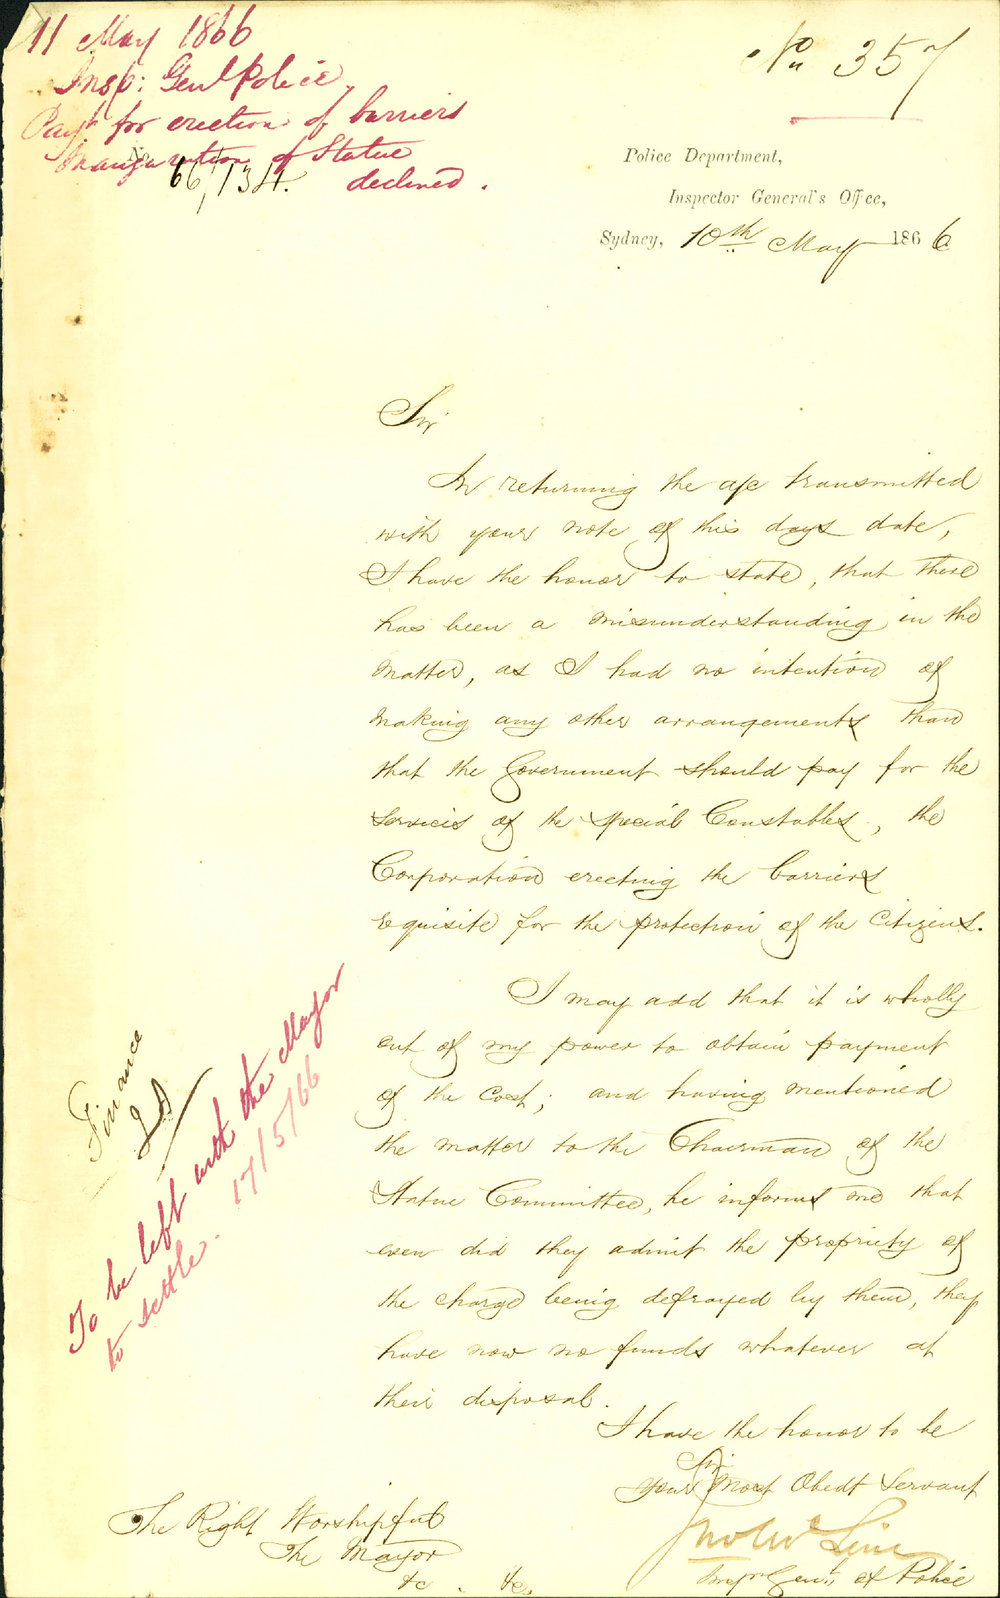 11 May 1866
Insp: Genl Police
Payt for erection of barriers
Inauguration of Statue
declined.
66,134.
No 357
Police Department,
Inspector General's Office,
Sydney, 10th May 1866
Sir
In returning the a/c transmitted
with your note of this days date,
I have the honor to state, that there
has been a misunderstanding in the
matter, as I had no intention of
making any other arrangements than
that the Government should pay for the
services of the special Constables, the
Corporation erecting the barriers
requisite for the protection of the Citizens.
I may add that it is wholly
out of my power to obtain payment
of the cost; and having mentioned
the matter to the Chairman of the
Statue Committee, he informs me that
even did they admit the propriety of
the charge being defrayed by them, they
have now no funds whatever at
their disposal.
I have the honor to be
Sir
Your Most Obedt Servant
Jno McLerie
Inspr Genl. of Police
The Right Worshipful
The Mayor
&c. &c.
Finance
To be left with the Mayor
to settle. 17/5/66